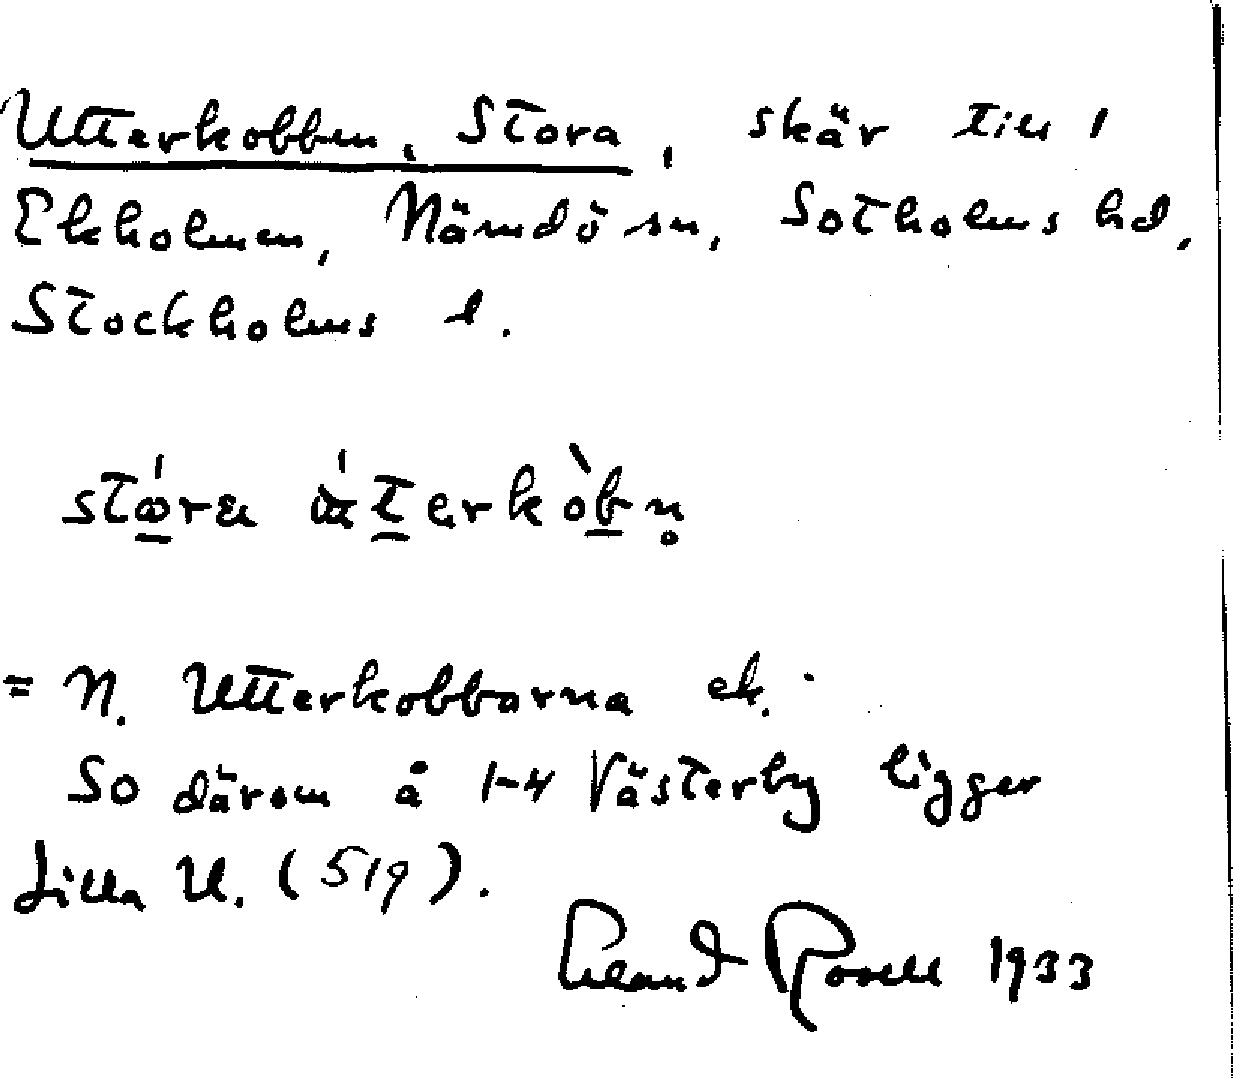 Utterkobben, Stora, skär till 1
Ekholmen, Nämdö sn, Sotholms hd,
Stockholms l.
stώ̲ra
= N. Utterkobbarna ek.
So därom å 1-4 Västerby ligger
Lilla U. (519).
Erland Rosell 1933